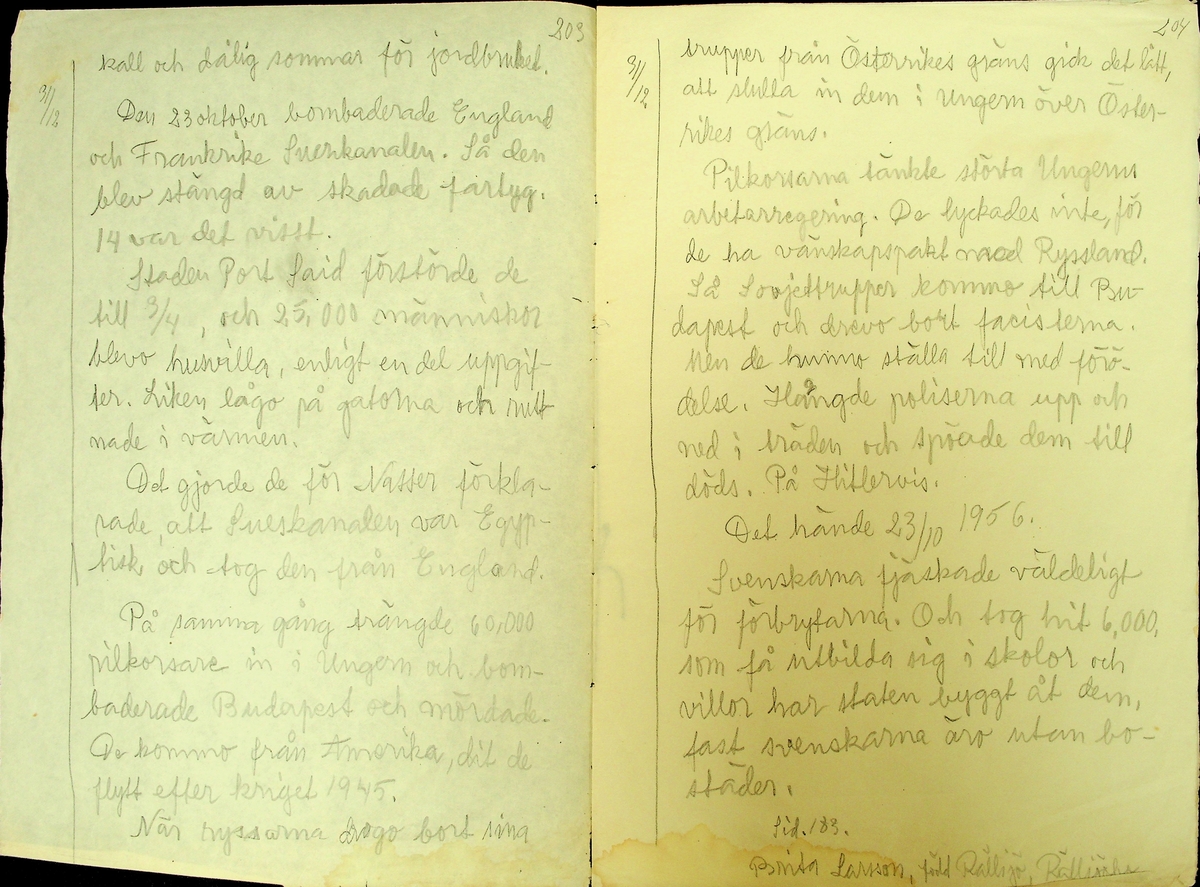 203
kall och dålig sommar för jordbruket.
31/12
Den 23 oktober bombaderade England
och Frankrike Sueskanalen. Så den
blev stängd av skadade fartyg.
14 var det visst.
Staden Port Said förstörde de
till 3/4, och 25,000 människor
blevo husvilla, enligt en del uppgif-
ter. Liken lågo på gatorna och rutt-
nade i värmen.
Det gjorde de för Nasser förkla-
rade, att Sueskanalen var Egyp-
tisk och tog den från England.
På samma gång trängde 60,000
pilkorsare in i Ungern och bom-
baderade Budapest och mördade.
De kommo från Amerika, dit de
flytt efter kriget 1945.
När ryssarna drogo bort sina
204
31/12
trupper från Österrikes gräns gick det lätt,
att slussa in dem i Ungern över Öster-
rikes gräns.
Pilkorsarna tänkte störta Ungerns
arbetarregering. De lyckades inte, för
de ha vänskapspakt med Ryssland.
Så Sovjettrupper kommo till Bu-
dapest och drevo bort facisterna.
Men de hunno ställa till med förö-
delse. Hängde poliserna upp och
ned i träden och spöade dem till
döds. På Hitlervis.
Det hände 23/10 1956.
Svenskarna fjäskade väldeligt
för förbrytarna. Och tog hit 6,000,
som få utbilda sig i skolor och
villor har staten byggt åt dem,
fast svenskarna äro utan bo-
städer.
Sid. 183.
Brita Larsson, född Rällsjö,